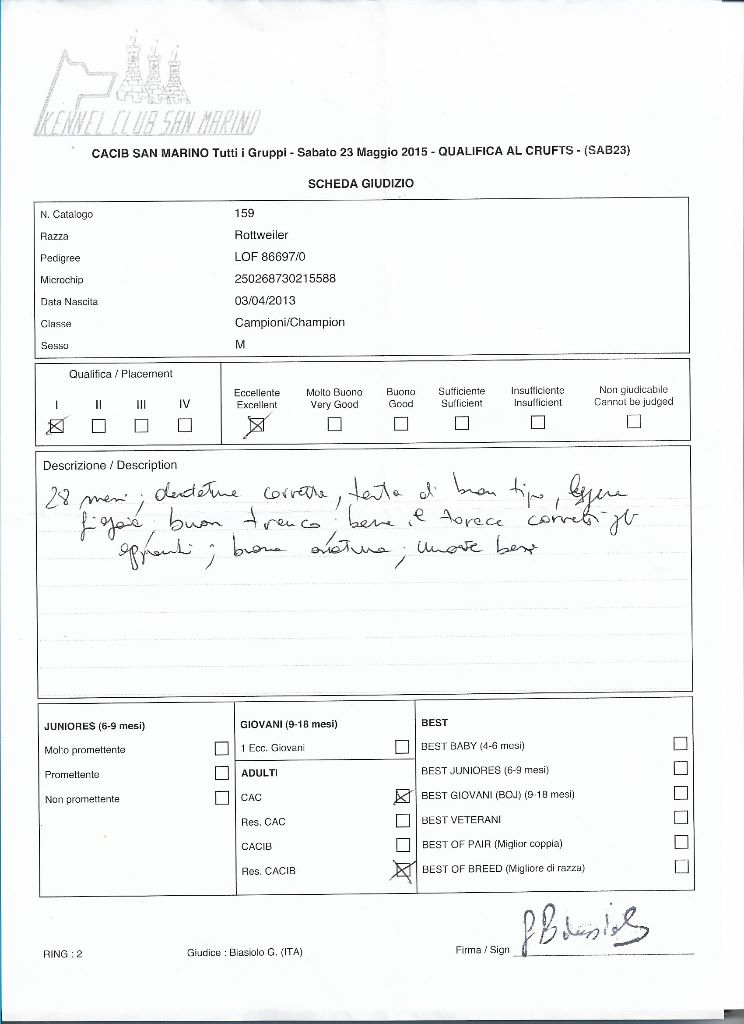 KENNEL CLUB SAN MARINO
CACIB SAN MARINO Tutti i Gruppi - Sabato 23 Maggio 2015 - QUALIFICA AL CRUFTS - (SAB23)
SCHEDA GIUDIZIO
N. Catalogo 159
Razza Rottweiler
Pedigree LOF 86697/0
Microchip 250268730215588
Data Nascita 03/04/2013
Classe Campioni/Champion
Sesso M
Qualifica / Placement
I II III IV
Eccellente Molto Buono Buono Sufficiente Insufficiente Non giudicabile
Excellent Very Good Good Sufficient Insufficient Cannot be judged
Descrizione / Description
28 mesi; dentatura corretta, testa di buon tipo, leggera
giogaia, buon tronco, bene il torace corretti gli
appiombi; buona ossatura, muove bene
JUNIORES (6-9 mesi) GIOVANI (9-18 mesi) BEST
Molto promettente 1 Ecc. Giovani BEST BABY (4-6 mesi)
Promettente ADULTI BEST JUNIORES (6-9 mesi)
Non promettente CAC BEST GIOVANI (BOJ) (9-18 mesi)
Res. CAC BEST VETERANI
CACIB BEST OF PAIR (Miglior coppia)
Res. CACIB BEST OF BREED (Migliore di razza)
RING : 2 Giudice : Biasiolo G. (ITA) Firma / Sign G Biasiolo